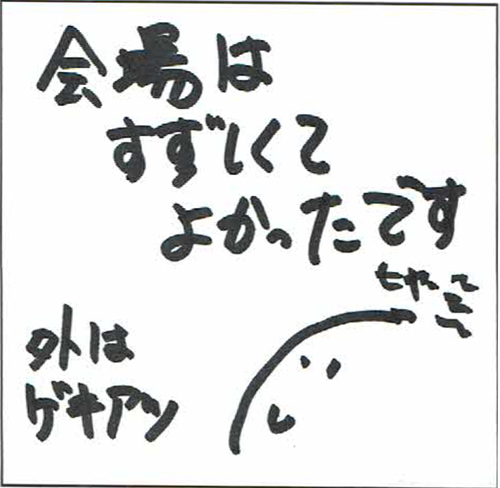 会場は
すずしくて
よかったです
外は
ゲキアツ